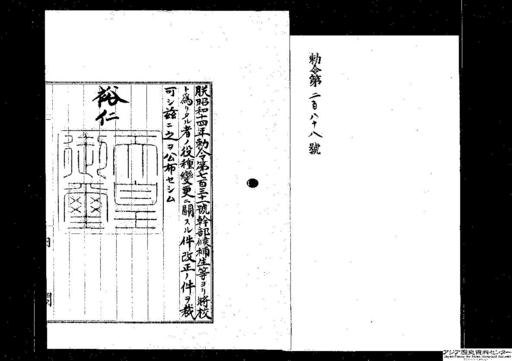 勅令第二百八十八號
朕昭和十四年勅令第七百三十一號幹部候補生等ヨリ將校
ト爲リタル者ノ役種變更ニ關スル件改正ノ件ヲ裁
可シ茲ニ之ヲ公布セシム
裕仁
天皇
御璽
アジア歴史資料センター